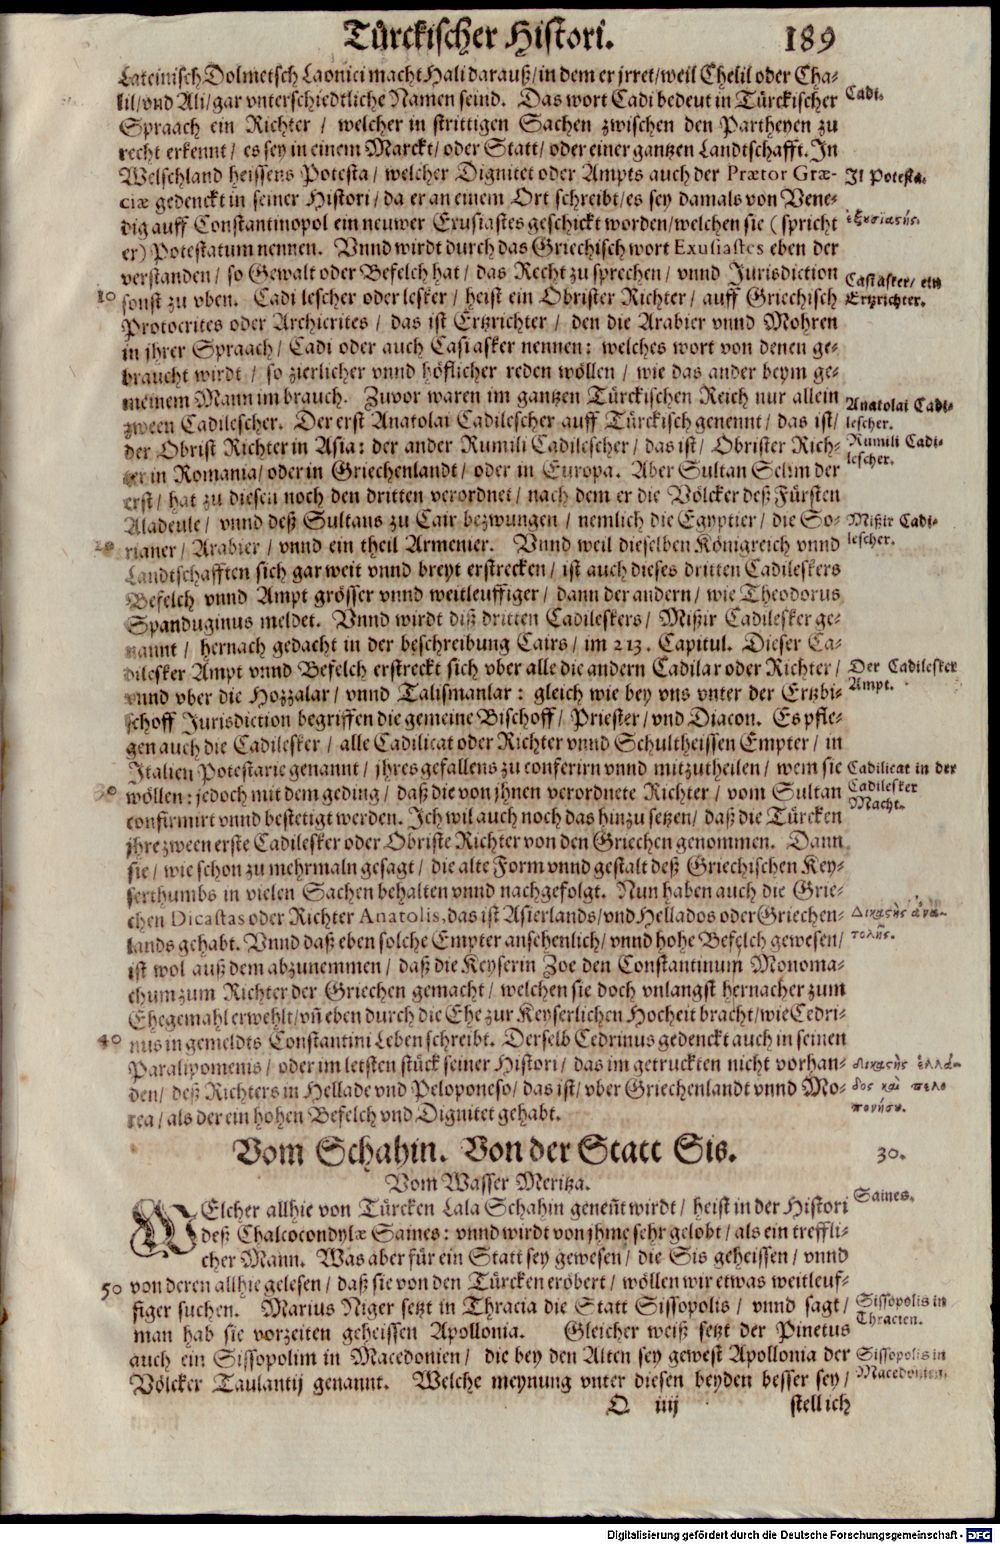 Türckischer Histori. 189
Lateinisch Dolmetsch Laonici macht Hali darauß/ in dem er jrret/ weil Chelil oder Cha-
lil/ vnd Ali/ gar vnterschiedtliche Namen seind. Das wort Cadi bedeut in Türckischer
Cadi.
Spraach ein Richter / welcher in strittigen Sachen zwischen den Partheyen zu
recht erkennt/ es sey in einem Marckt/ oder Statt/ oder einer gantzen Landtschafft. In
Welschland heissens Potesta/ welcher Dignitet oder Ampts auch der Prætor Græ-
Il Potesta.
ciæ gedenckt in seiner Histori/ da er an einem Ort schreibt/ es sey damals von Vene-
dig auff Constantinopol ein neuwer Exusiastes geschickt worden/ welchen sie (spricht
ἐξουσιαστὴς.
er) Potestatum nennen. Vnnd wirdt durch das Griechisch wort Exusiastes eben der
verstanden/ so Gewalt oder Befelch hat/ das Recht zu sprechen/ vnnd Jurisdiction
10 sonst zu vben. Cadi lescher oder lesker/ heist ein Obrister Richter/ auff Griechisch
Casiasker/ ein
Ertzrichter.
Protocrites oder Archicrites / das ist Ertzrichter / den die Arabier vnnd Mohren
in jhrer Spraach/ Cadi oder auch Casi asker nennen: welches wort von denen ge-
braucht wirdt / so zierlicher vnnd höflicher reden wöllen / wie das ander beym ge-
meinem Mann im brauch. Zuvor waren im gantzen Türckischen Reich nur allein
zween Cadilescher. Der erst Anatolai Cadilescher auff Türckisch genennt/ das ist/
Anatolai Cadi-
lescher.
der Obrist Richter in Asia: der ander Rumili Cadilescher/ das ist/ Obrister Rich-
Rumili Cadi-
lescher.
ter in Romania/ oder in Griechenlandt/ oder in Europa. Aber Sultan Selim der
erst/ hat zu diesen noch den dritten verordnet/ nach dem er die Völcker deß Fürsten
Aladeule/ vnnd deß Sultans zu Cair bezwungen/ nemlich die Egyptier/ die So-
Mißir Cadi-
lescher.
20 rianer/ Arabier/ vnnd ein theil Armenier. Vnnd weil dieselben Königreich vnnd
Landtschafften sich gar weit vnnd breyt erstrecken/ ist auch dieses dritten Cadileskers
Befelch vnnd Ampt grösser vnnd weitleuffiger/ dann der andern/ wie Theodorus
Spanduginus meldet. Vnnd wirdt diß dritten Cadileskers/ Mißir Cadilesker ge-
nannt/ hernach gedacht in der beschreibung Cairs/ im 213. Capitul. Dieser Ca-
dilesker Ampt vnnd Befelch erstreckt sich vber alle die andern Cadilar oder Richter/
Der Cadilesker
Ampt.
vnnd vber die Hozzalar/ vnnd Talismanlar: gleich wie bey vns vnter der Ertzbi-
schoff Jurisdiction begriffen die gemeine Bischoff/ Priester/ vnd Diacon. Es pfle-
gen auch die Cadilesker/ alle Cadilicat oder Richter vnnd Schultheissen Empter/ in
Italien Potestarie genannt/ jhres gefallens zu conferirn vnnd mitzutheilen/ wem sie
Cadilicat in der
Cadilesker
Macht.
30 wöllen: jedoch mit dem geding/ daß die von jhnen verordnete Richter/ vom Sultan
confirmirt vnnd bestetigt werden. Ich wil auch noch das hinzu setzen/ daß die Türcken
jhre zween erste Cadilesker oder Obriste Richter von den Griechen genommen. Dann
sie/ wie schon zu mehrmaln gesagt/ die alte Form vnnd gestalt deß Griechischen Key-
serthumbs in vielen Sachen behalten vnnd nachgefolgt. Nun haben auch die Grie-
chen Dicastas oder Richter Anatolis, das ist Asierlands/ vnd Hellados oder Griechen-
Δικαστὴς ἀνα-
τολῆς.
lands gehabt. Vnnd daß eben solche Empter ansehenlich/ vnnd hohe Befelch gewesen/
ist wol auß dem abzunemmen/ daß die Keyserin Zoe den Constantinum Monoma-
chum zum Richter der Griechen gemacht/ welchen sie doch vnlangst hernacher zum
Ehegemahl erwehlt/ vn̄ eben durch die Ehe zur Keyserlichen Hocheit bracht/ wie Cedri-
40 nus in gemeldts Constantini Leben schreibt. Derselb Cedrinus gedenckt auch in seinen
Paralipomenis/ oder im letsten stück seiner Histori/ das im getruckten nicht vorhan-
den/ deß Richters in Hellade vnd Peloponeso/ das ist/ vber Griechenlandt vnnd Mo-
δικαστὴς ἑλλά-
δος καὶ πελο
πονήσου.
rea/ als der ein hohen Befelch vnd Dignitet gehabt.
Vom Schahin. Von der Statt Sis. 30.
Vom Wasser Meritza.
WElcher allhie von Türcken Lala Schahin genen̄t wirdt/ heist in der Histori
Saines.
deß Chalcocondylæ Saines: vnnd wirdt von jhme sehr gelobt/ als ein treffli-
cher Mann. Was aber für ein Statt sey gewesen/ die Sis geheissen/ vnnd
50 von deren allhie gelesen/ daß sie von den Türcken eröbert/ wöllen wir etwas weitleuf-
figer suchen. Marius Niger setzt in Thracia die Statt Sissopolis/ vnnd sagt/
Sissopolis in
Thracien.
man hab sie vorzeiten geheissen Apollonia. Gleicher weiß setzt der Pinetus
auch ein Sissopolim in Macedonien/ die bey den Alten sey gewest Apollonia der
Sissopolis in
Macedonien.
Völcker Taulantij genannt. Welche meynung vnter diesen beyden besser sey/
Q iiij stell ich
Digitalisierung gefördert durch die Deutsche Forschungsgemeinschaft - DFG